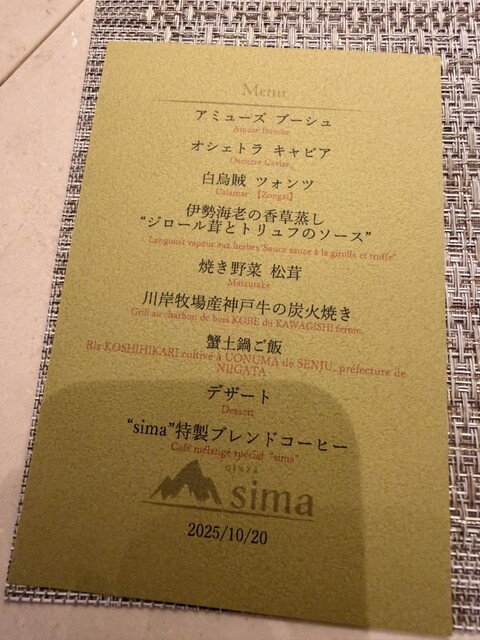 Menu
アミューズ ブーシュ
Amuse Bouche
オシェトラ キャビア
Oscietre Caviar
白烏賊 ツォンツ
Calamar 【Zongzi】
伊勢海老の香草蒸し
“ジロール茸とトリュフのソース”
Langoust vapeur aux herbes"Sauce sauce à la girolle et truffe"
焼き野菜 松茸
Matsutake
川岸牧場産神戸牛の炭火焼き
Grill au charbon de bois KOBE du KAWAGISHI ferme.
蟹土鍋ご飯
Riz KOSHIHIKARI cultivé à UONUMA de SENJU, préfecture de
NIIGATA
デザート
Dessert
“sima”特製ブレンドコーヒー
Café mélange spécial "sima"
GINZA
sima
2025/10/20